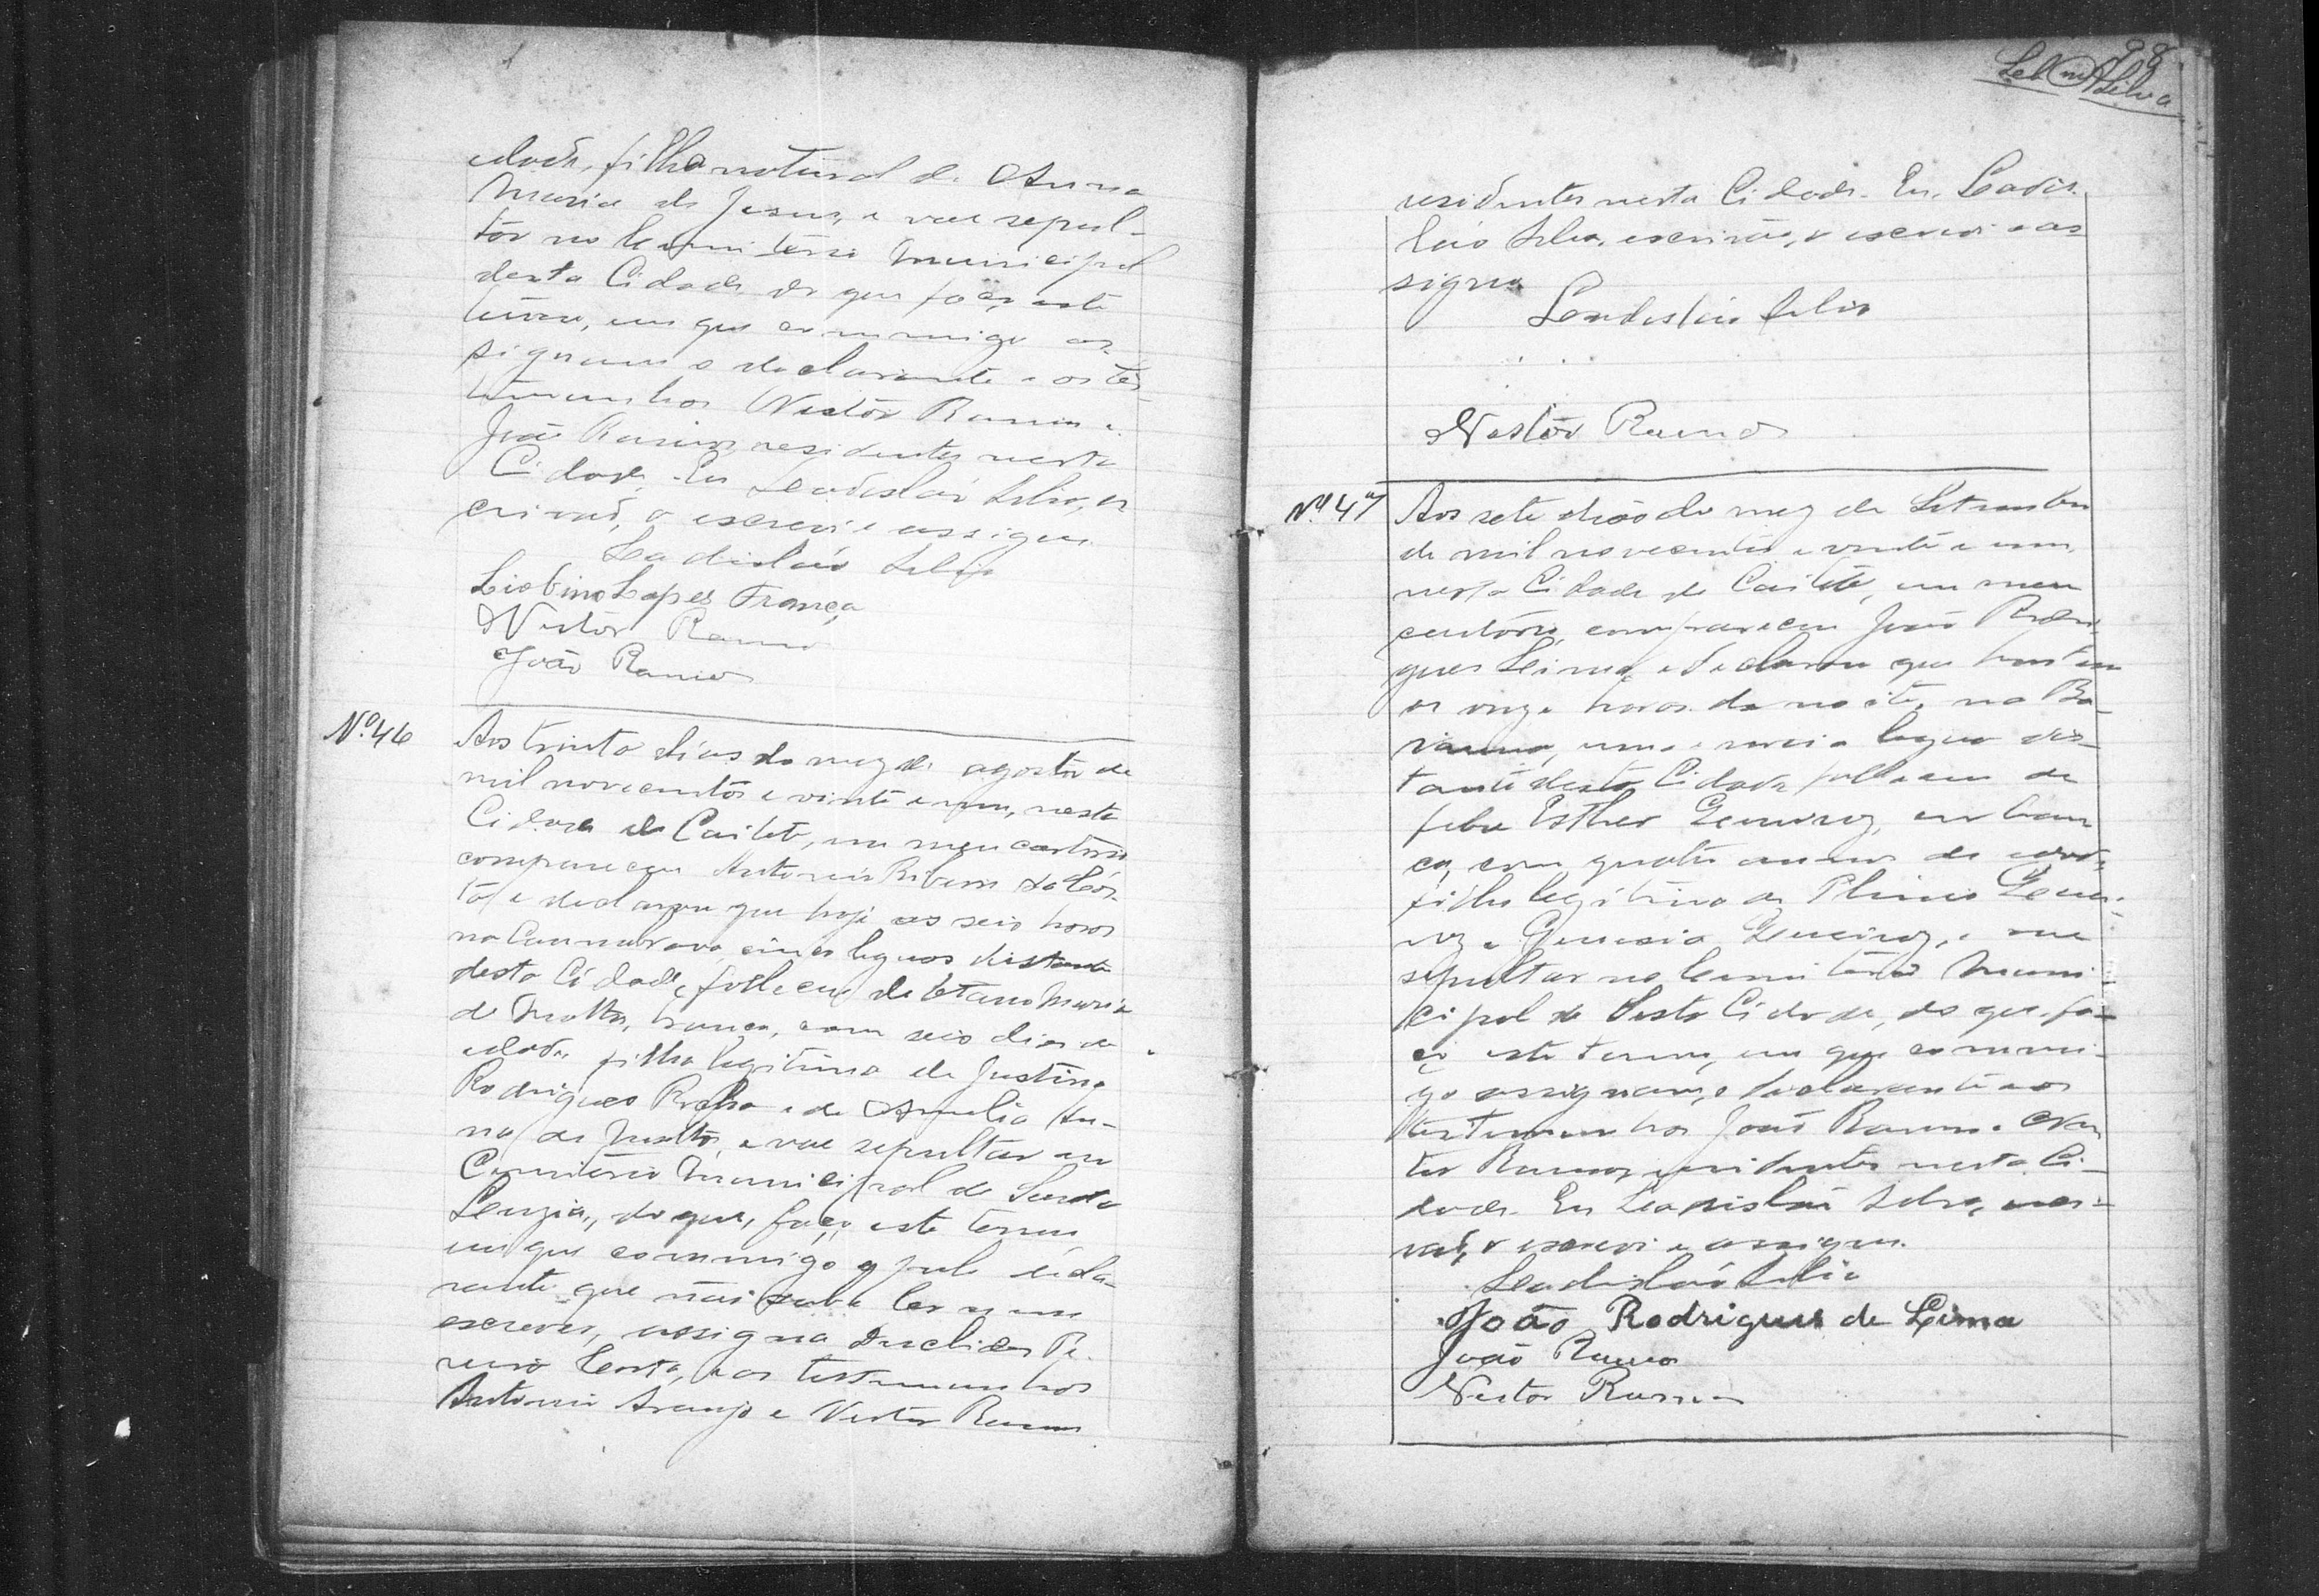 edade, filha natural de Anna
Maria de Jesus, e vae sepul-
tar no Cemiterio Municipal
desta Cidade do que faço este
termo, em que commigo as-
signam o declarante e as tes-
temunhas Nestôr Ramos e
João Ramos, residentes nesta
Cidade. Eu Leadislau Silva, es
crivaõ, o escrevi e assigno
Leadislau Silva
Liobino Lopes França
Nestôr Ramos
João Ramos
Nº 46
Aos trinta dias do mez de agosto de
mil novecentos e vinte e um, nesta
Cidade de Caiteté, em meu cartorio
compareceu Antonio Ribeiro da Cos-
ta, e declarou que hoje as seis horas
na Cannabrava, cinco leguas distante
desta Cidade, falleceu de tetano Maria
de Motta, branca, com seis dias de
edade, filha legitima de Justino
Rodrigues Rocha e de Amelia An-
na de, e vae sepultar no
Cemiterio Municipal de Santa
Luzia, do que, faço este termo
em que commigo e pelo
rante que não sabe ler nem
escrever, assigna Euclides Pe-
Costa, e as testemunhas
Antonio Araujo e Nestor Ramos
98
Silva
residentes nesta Cidade. Eu, Leadis-
láo Silva, escrivão, o escrevi e as
signo
Leadisláu Silva
Nestôr Ramos
Nº 47
Aos sete dias do mez de Setembro
de mil novecentos e vinte e um,
nesta Cidade de Caiteté, em meu
cartorio, compareceu João Rodri-
gues Lima, e declarou que hontem
as onze horas da noite, na Ba-
uma e meia legua dis-
tante desta Cidade falleceu de
febre Esther Queiroz, branc
ca, com quatro annos de edade,
filha legitima de Plinio Quei-
roz e Queiroz, e vae
sepultar no Cemiterio Muni
cipal desta Cidade, do que fa-
ço este termo, em que commi-
go assignam, o declarante e as
testemunhas João Ramos e Nes
tor Ramos, residentes nesta Ci-
dade. Eu Leadislau Silva, escri-
vaõ, o escrevi e assigno.
Leadisláo Silva
João Rodrigues de Lima
João Ramos
Nestor Ramos